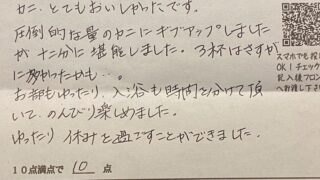 カニ、とてもおいしかったです。
圧倒的な量のカニにギブアップしました
が十二分に堪能しました。3杯はさすが
に多かったかも…。
お部屋もゆったり、入浴も時間を分けて頂
いて、のんびり楽しめました。
ゆったり休みを過ごすことができました。
10点満点で 10 点
スマホでも
OK!チェック
記入後フロン
へお渡し下さ